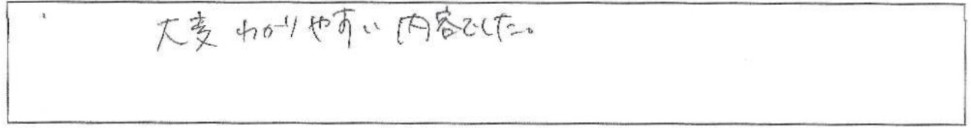 大変わかりやすい内容でした。